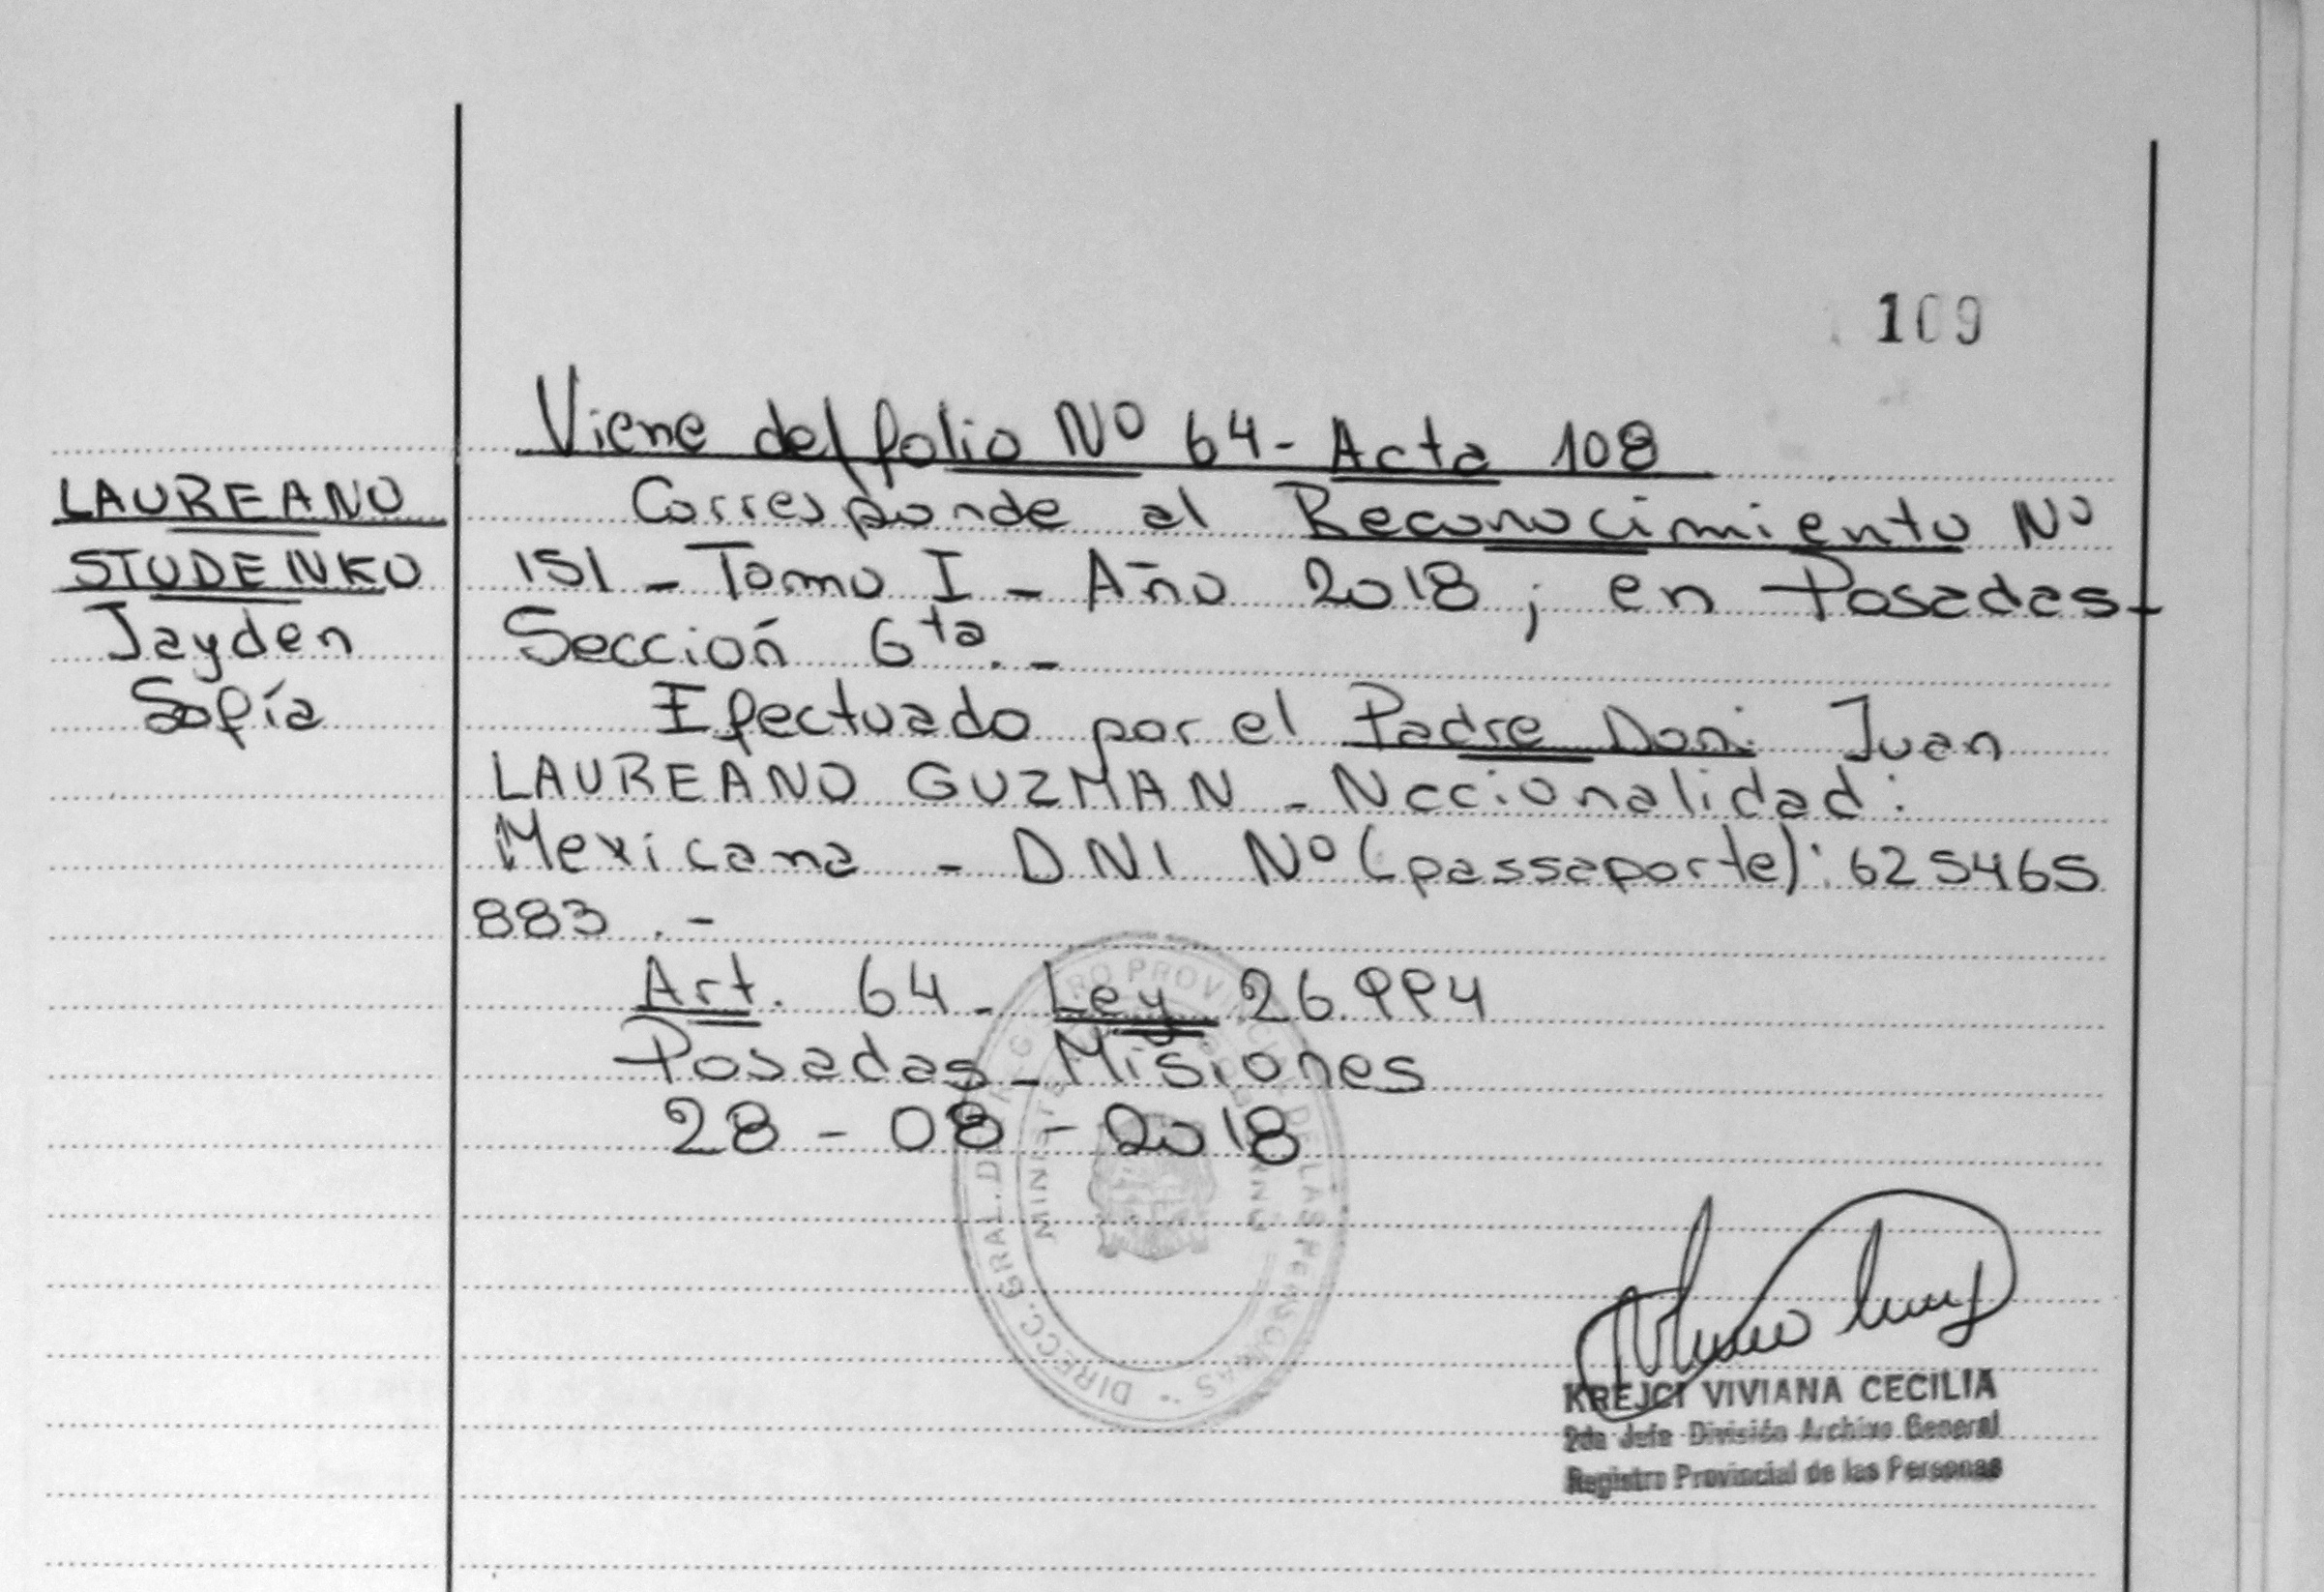 109
Viene del folio Nº 64 - Acta 108
LAUREANO
STUDENKO
Jayden
Sofía
Corresponde al Reconocimiento Nº
151 - Tomo I - Año 2018 ; en Posadas -
Sección 6ta. -
Efectuado por el Padre Don: Juan
LAUREANO GUZMAN - Nacionalidad :
Mexicana - DNI Nº (passaporte) : 625465
883 . -
Art. 64 - Ley 26.994
Posadas - Misiones
28 - 08 - 2018
DIRECC. GRAL. DEL REGISTRO PROVINCIAL DE LAS PERSONAS
KREJCI VIVIANA CECILIA
2da Jefa División Archivo General
Registro Provincial de las Personas